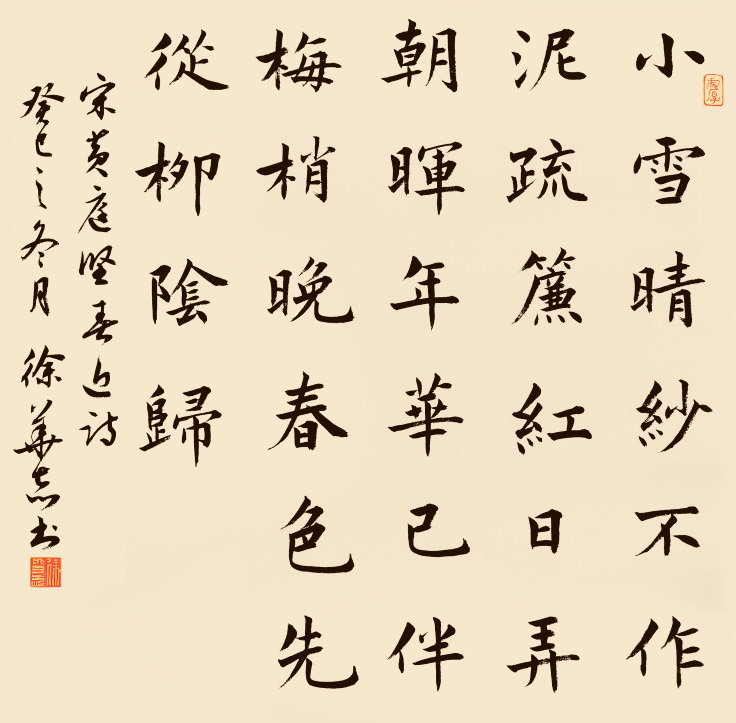 小雪晴紗不作
泥疏簾紅日弄
朝暉年華已伴
梅梢晚春色先
從柳陰歸
宋黄庭堅春近詩
癸巳之冬月徐華志书